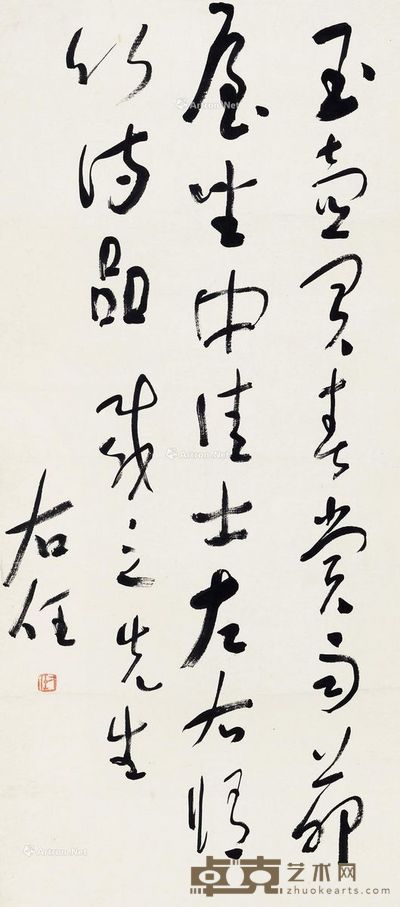 玉壶买春赏雨茆
屋坐中佳士左右修
竹诗品 成之先生
右任
Artron.Net
Artron.Net
Artron.Net
卓克艺术网
zhuokearts.com